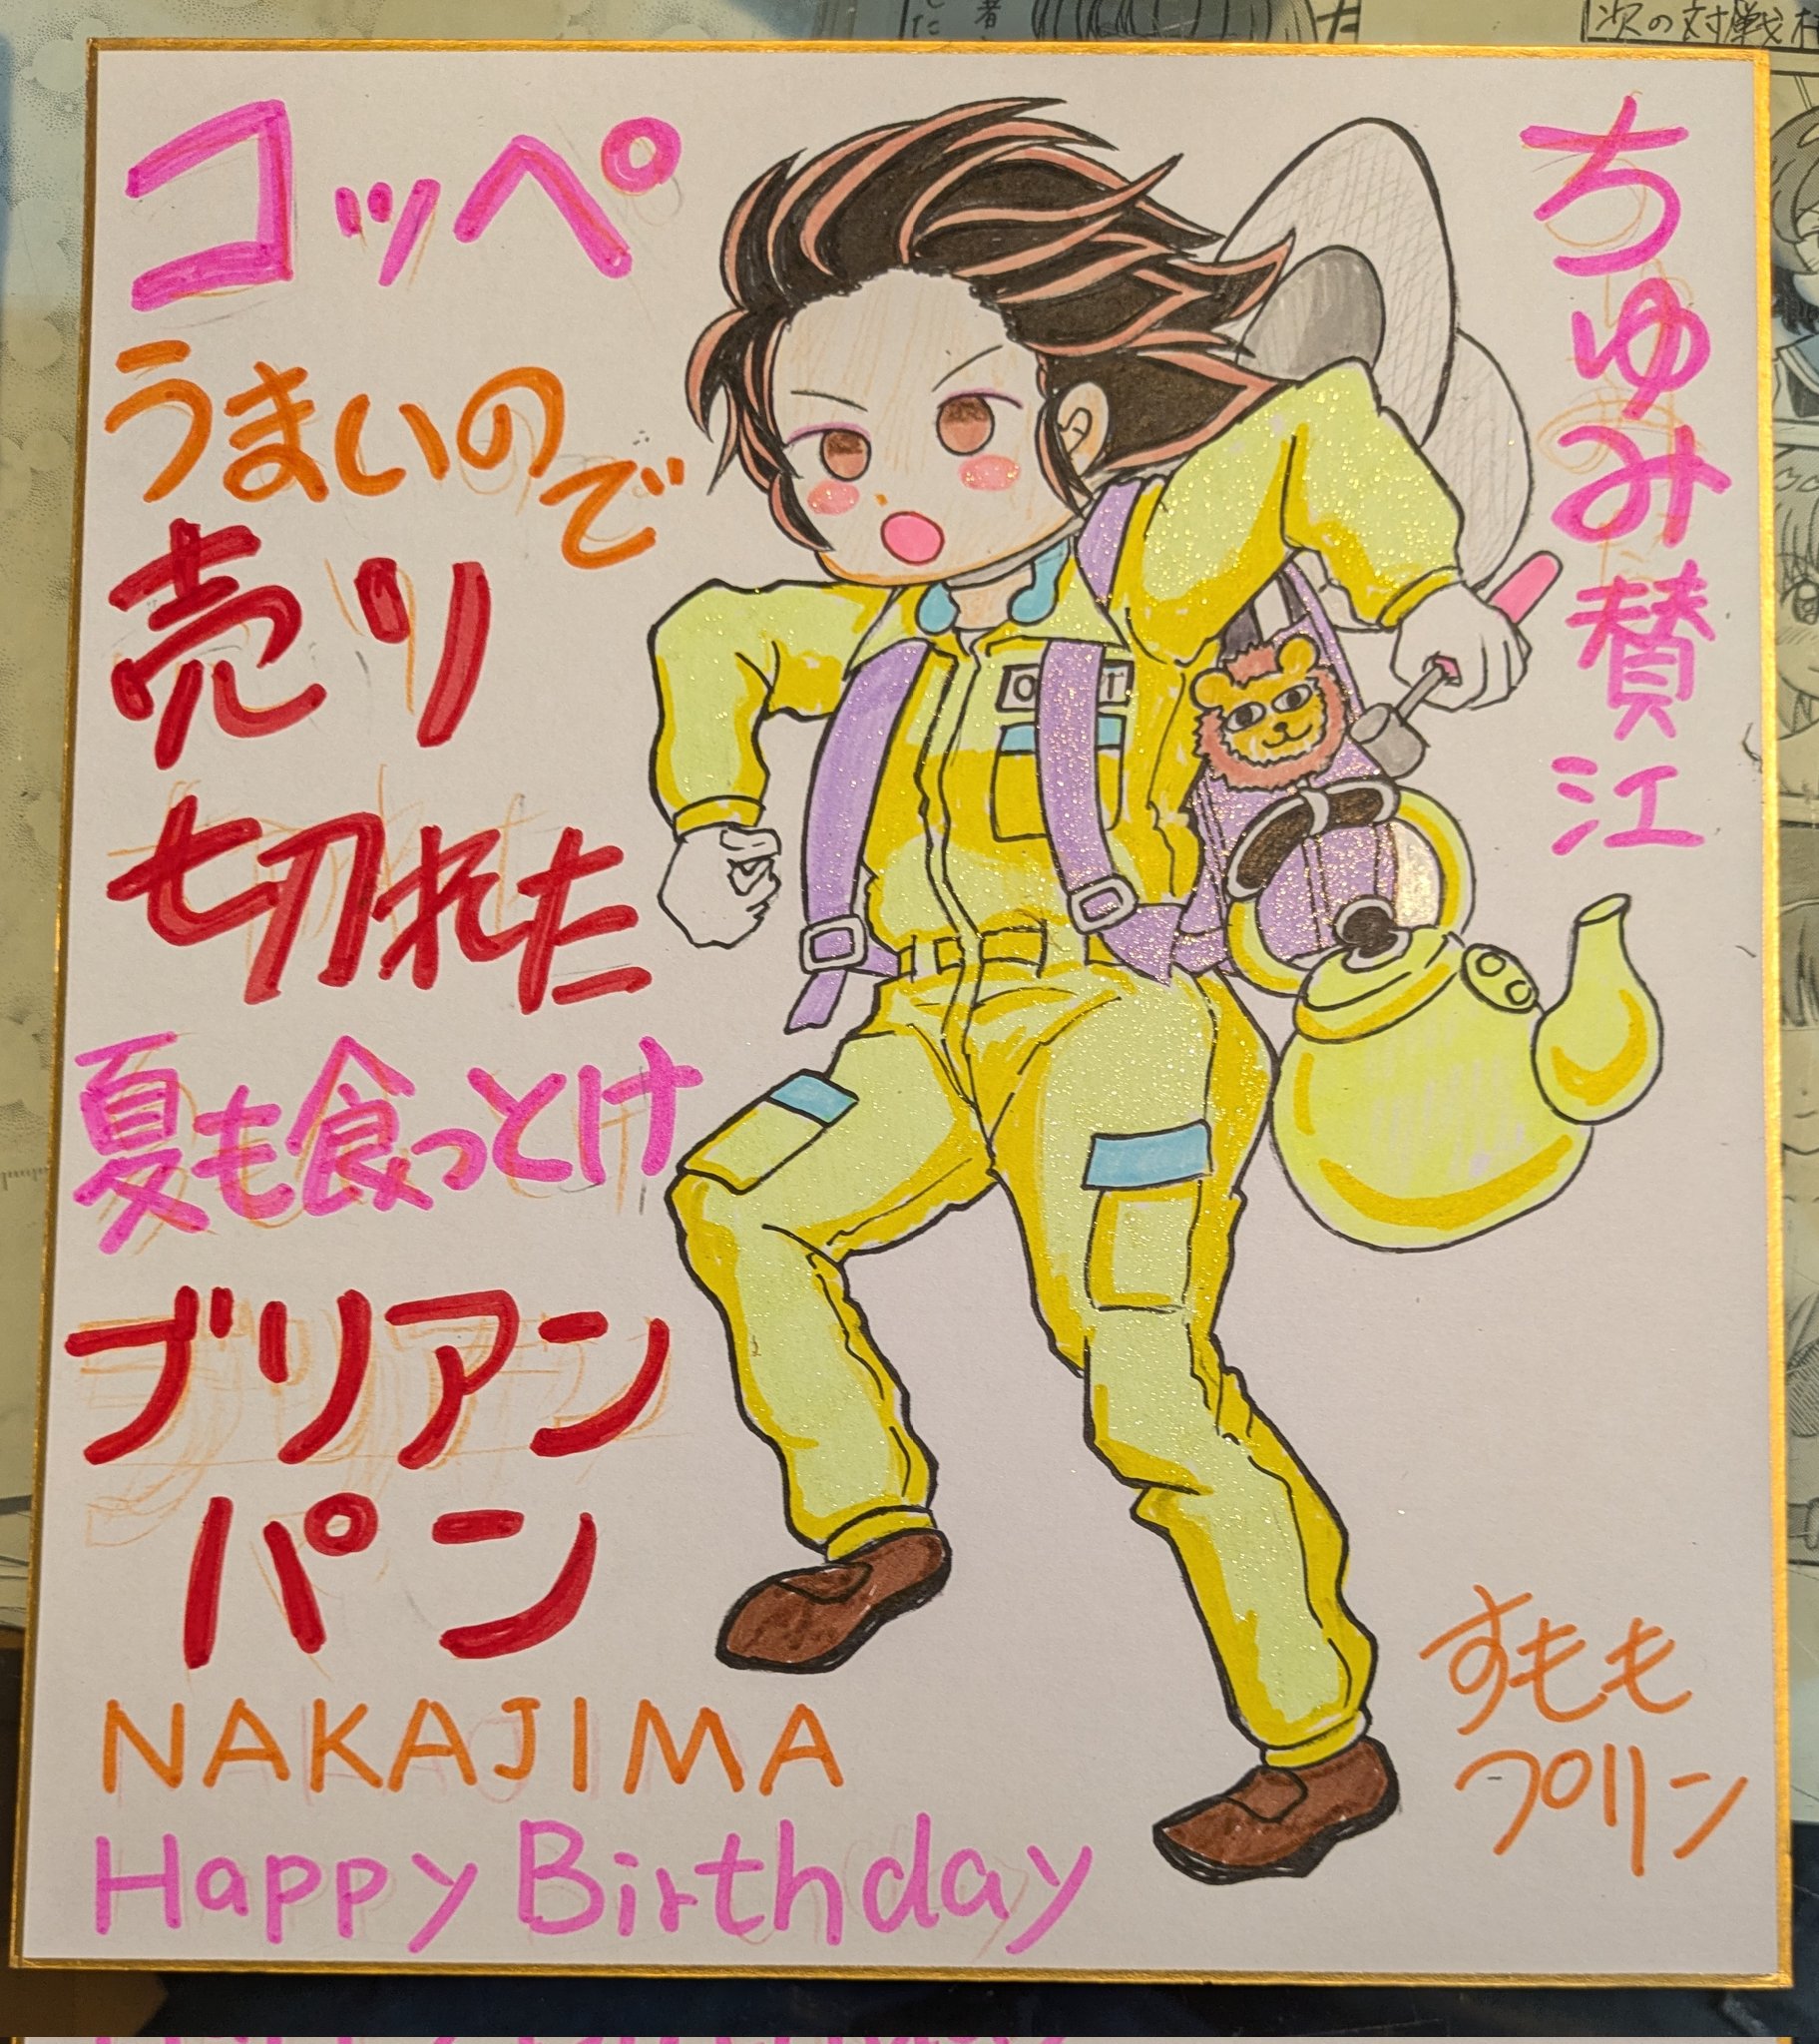 コッペ
うまいので
売り
切れた
夏も食っとけ
ブリアン
パン
NAKAJIMA
Happy Birthday
ちゅみ賛江
すもも
プリン
次の対戦